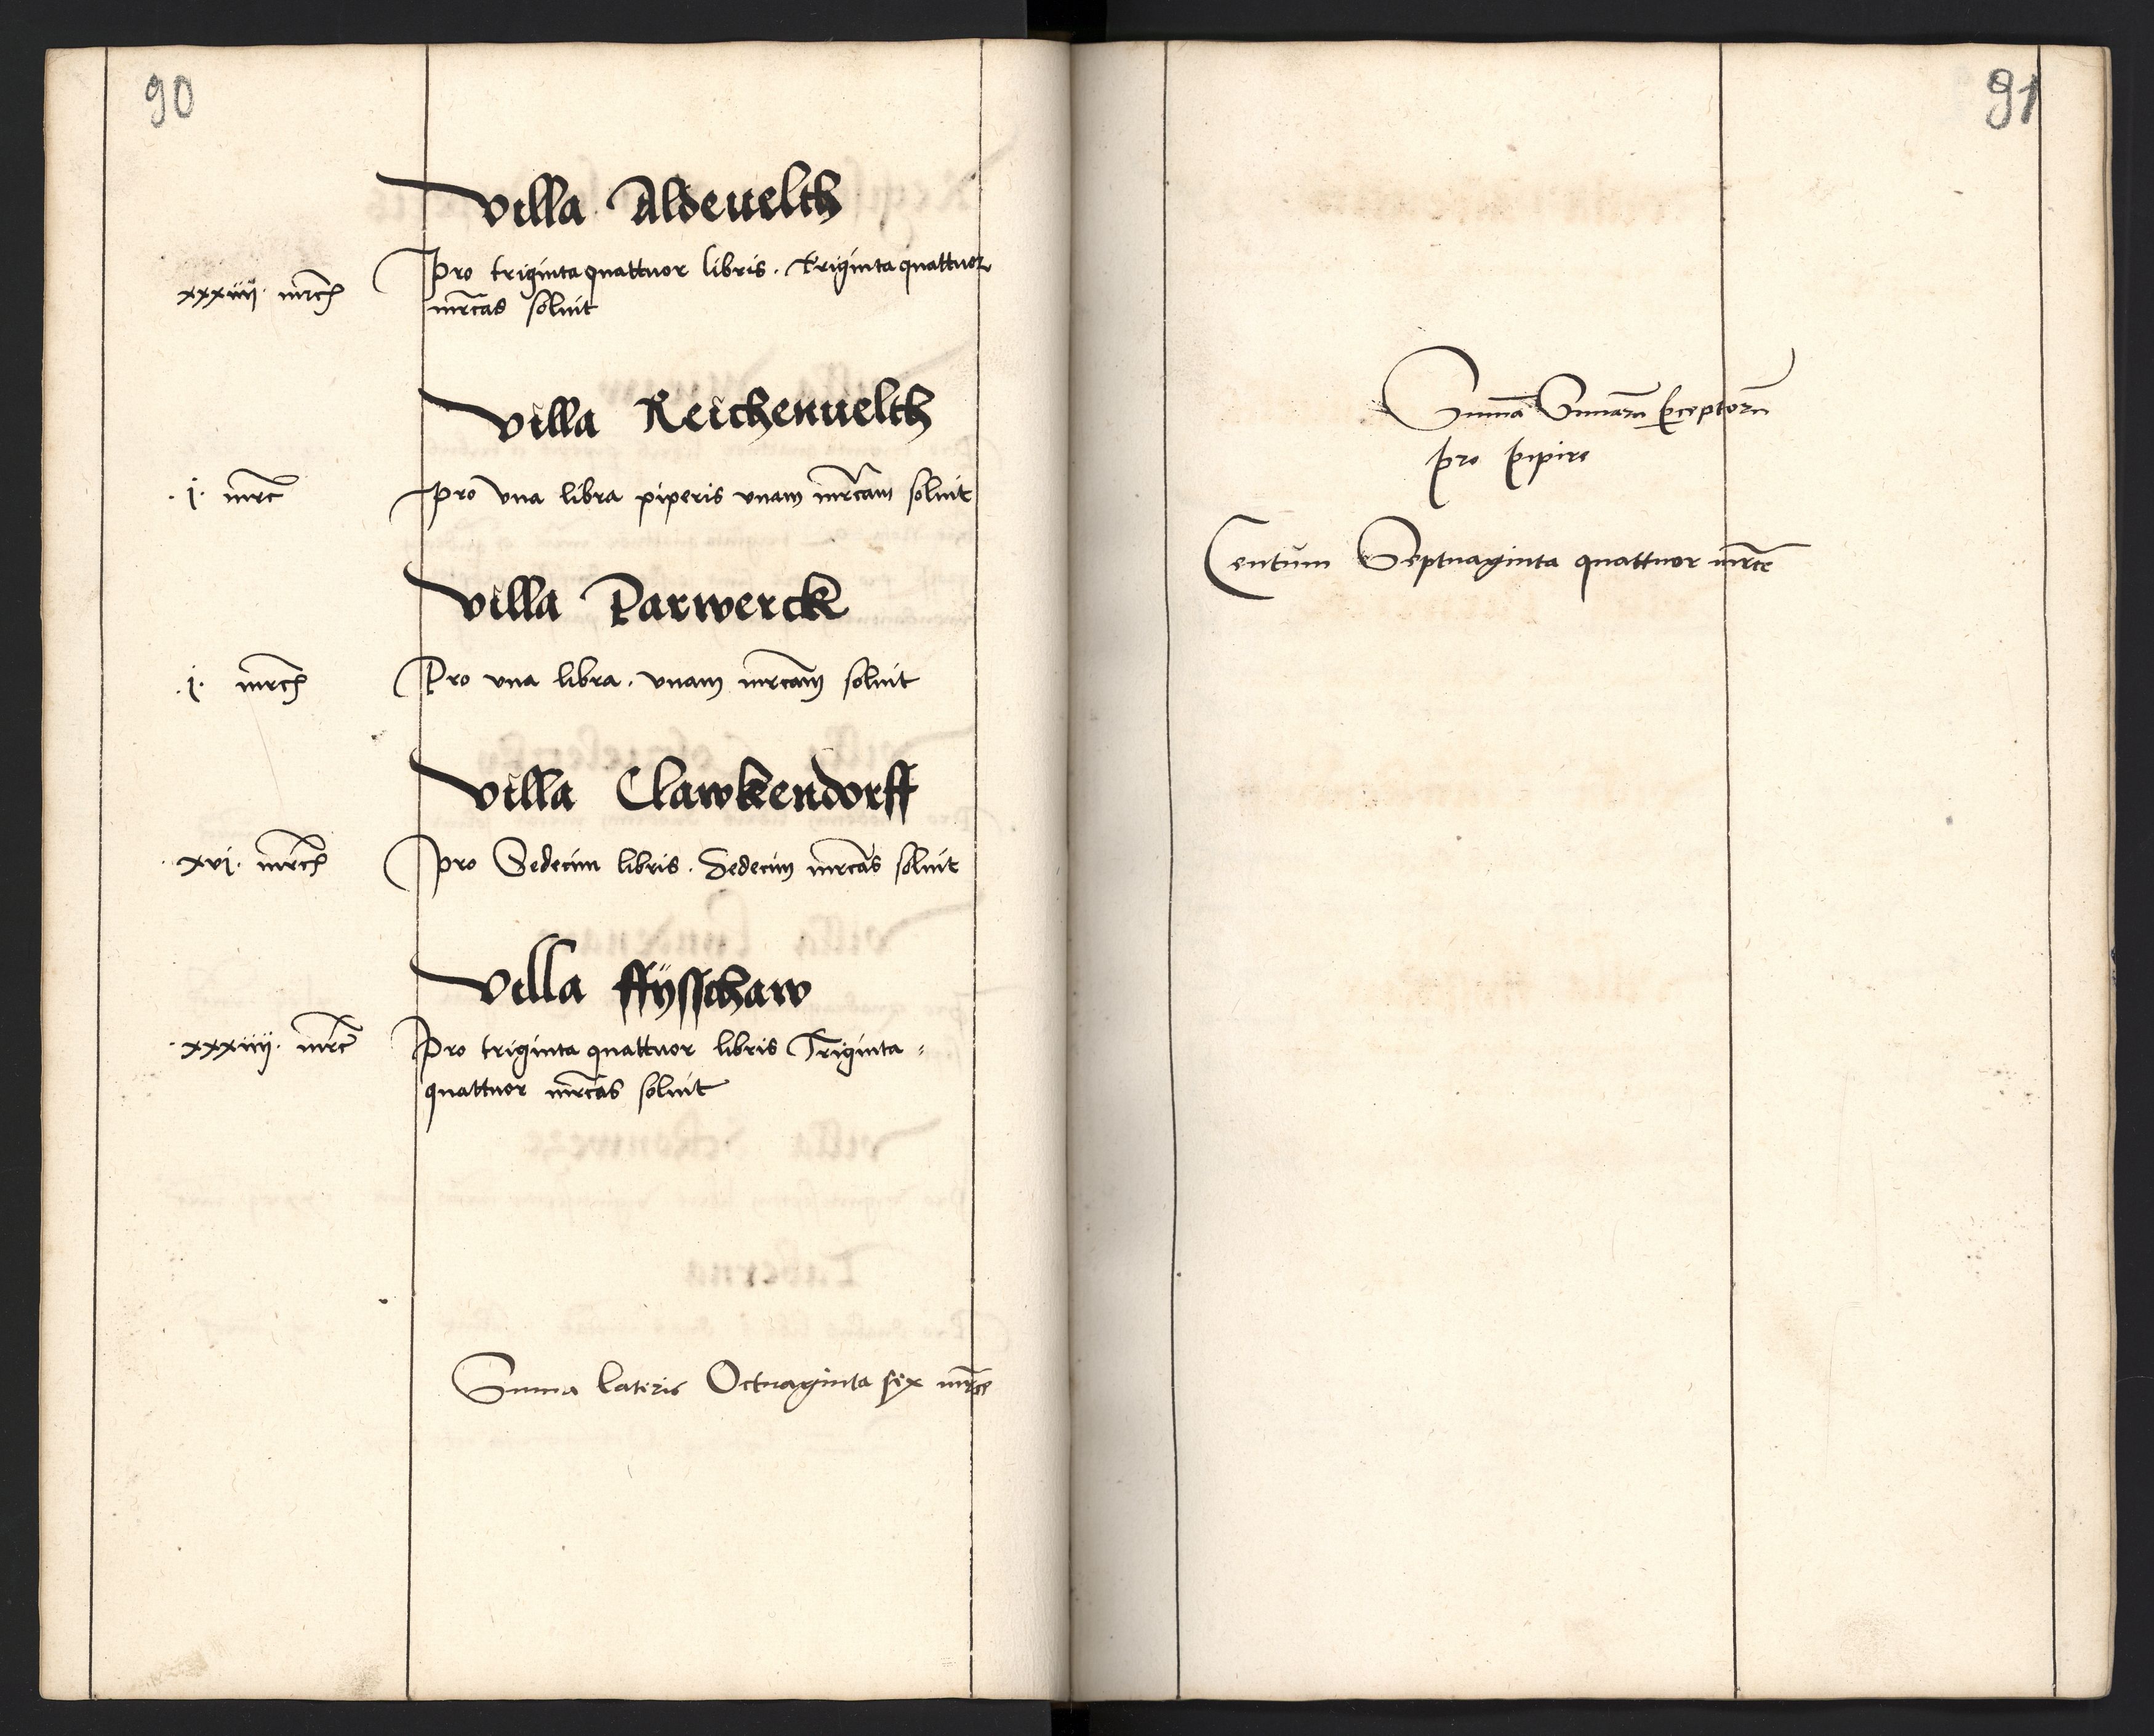 90
villa Aldeuelth
xxxiiij. mrc
Pro trigintaquattuor libris. Trigintaquattuor
mrcas soluit
villa Reichenuelth
.j. mrc
pro vna libra piperis vnam mrcam soluit
villa Parwerck
.j. mrc
Pro vna libra. vnam mrcam soluit
villa Clawkendorff
.xvj. mrc
Pro Sedecim libris. Sedecim mrcas soluit
villa ffÿsschaw
.xxxiiij. mrc
Pro triginta quattuor libris Triginta =
quattuor mrcas soluit
Suma lateris Octuaginta sex mrce
91
Suma Sumaru
pro pipire
Centum Septuaginta quattuor mrce